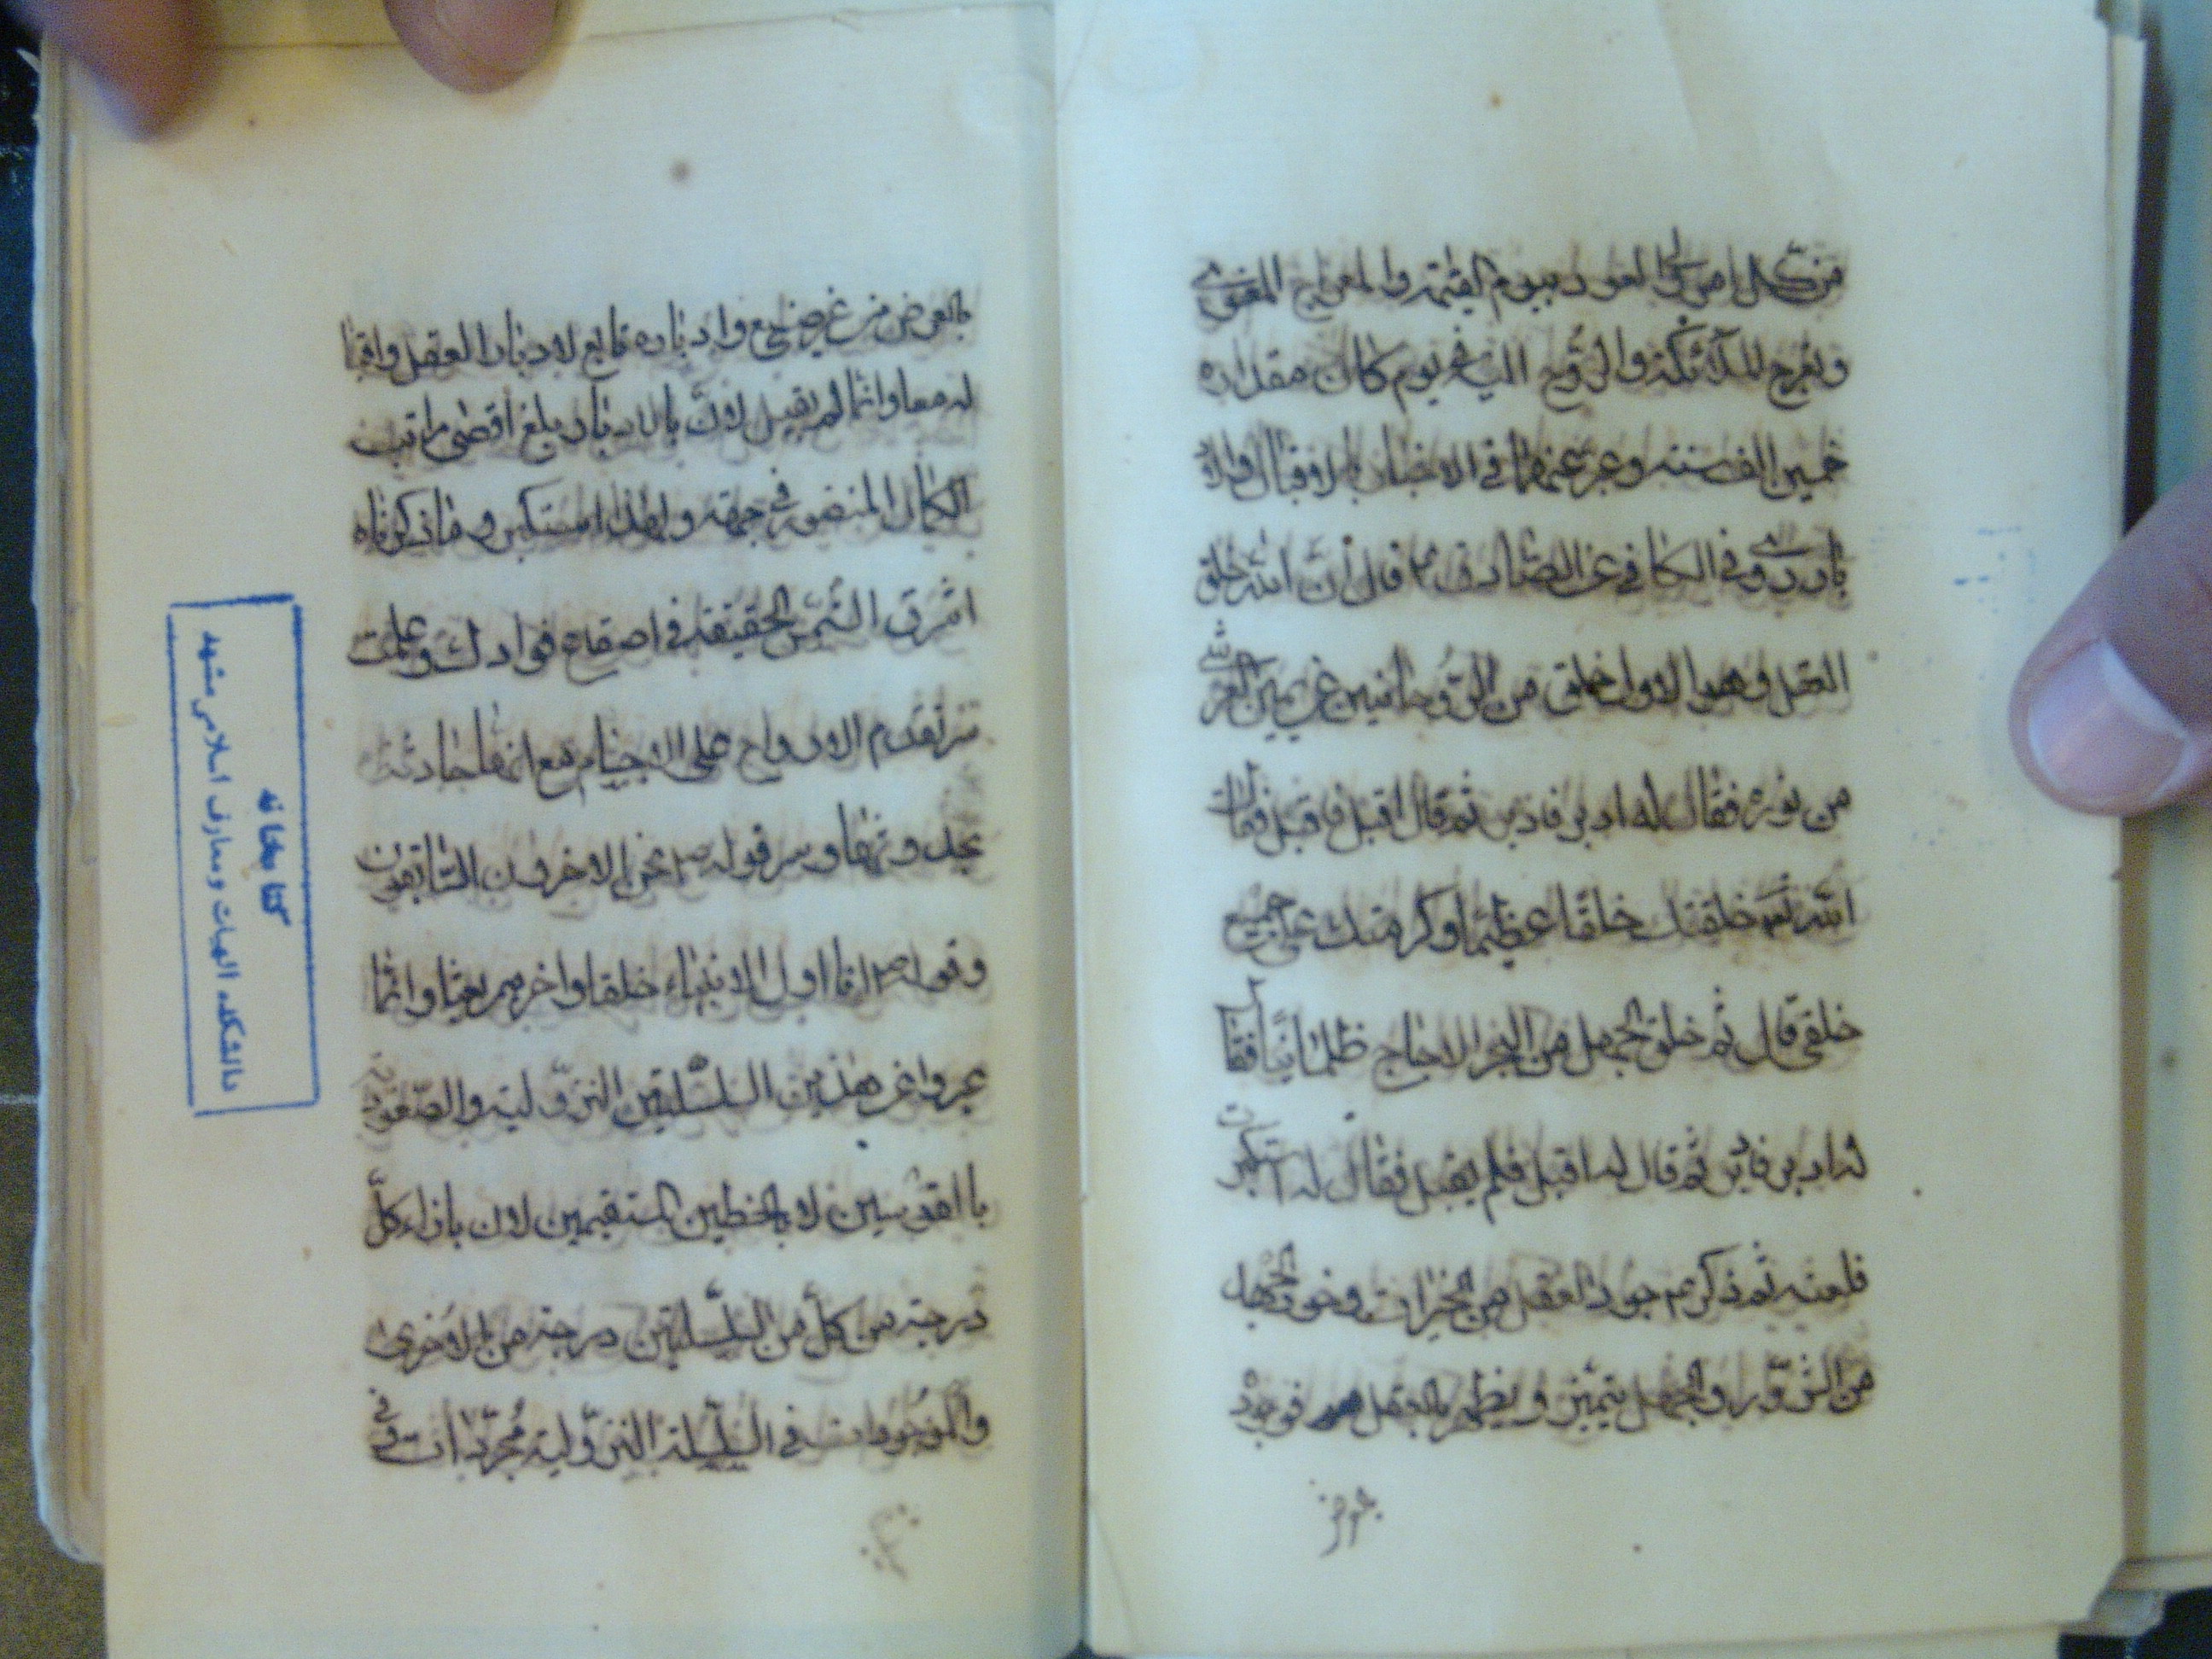 من كل امر كالعود بيوم القيمة والمعراج المعنوى
وتعرج الملائكة والروح اليه فى يوم كان مقداره
خمسين الف سنة وعبر عنهما فى الاخبار بالاقبال والاد
بار روى فى الكافى عن الصادق ع قال ان الله خلق
العقل وهو اول خلق من الروحانيين عن يمين العرش
من نوره فقال له ادبر فادبر ثم قال اقبل فاقبل فقال
الله تعه خلقتك خلقا عظيما وكرمتك على جميع
خلقى قال ثم خلق الجهل من البحر الاجاج ظلمانيا فقال
له ادبر فادبر ثم قال له اقبل فلم يقبل فقال له استكبرت
فلعنه ثم ذكر ع جنود العقل من الخيرات وجنود الجهل
من الشرور والجهل يتميز ويظهر بالعقل فهو موجود
بالعرض من غير صنع وادباره تابع لادبار العقل واقبا
له معا وانما لم يقبل لان بالادبار بلغ اقصى مراتب
الكمال المتصور فى جهته ولهذا استكبر ومما ذكرناه
اشرق الشمس الحقيقة فى اصقاع فوادك وعلمت
سر تقدم الارواح على الاجسام مع انها حادثة
بحدوثها وسر قوله ص نحن الاخرون السابقون
وقوله ص انا اول الانبياء خلقا واخرهم بعثا وانما
عبروا عن هذين السلسلتين النزولية والصعودية
بالقوسين لا بالخطين المستقيمين لان بازاء كل
درجة من كل من السلسلتين درجة من الاخرى
والموجودات فى السلسلة النزولية مجردات فى
كتابخانه
دانشكده الهيات ومعارف اسلامى مشهد